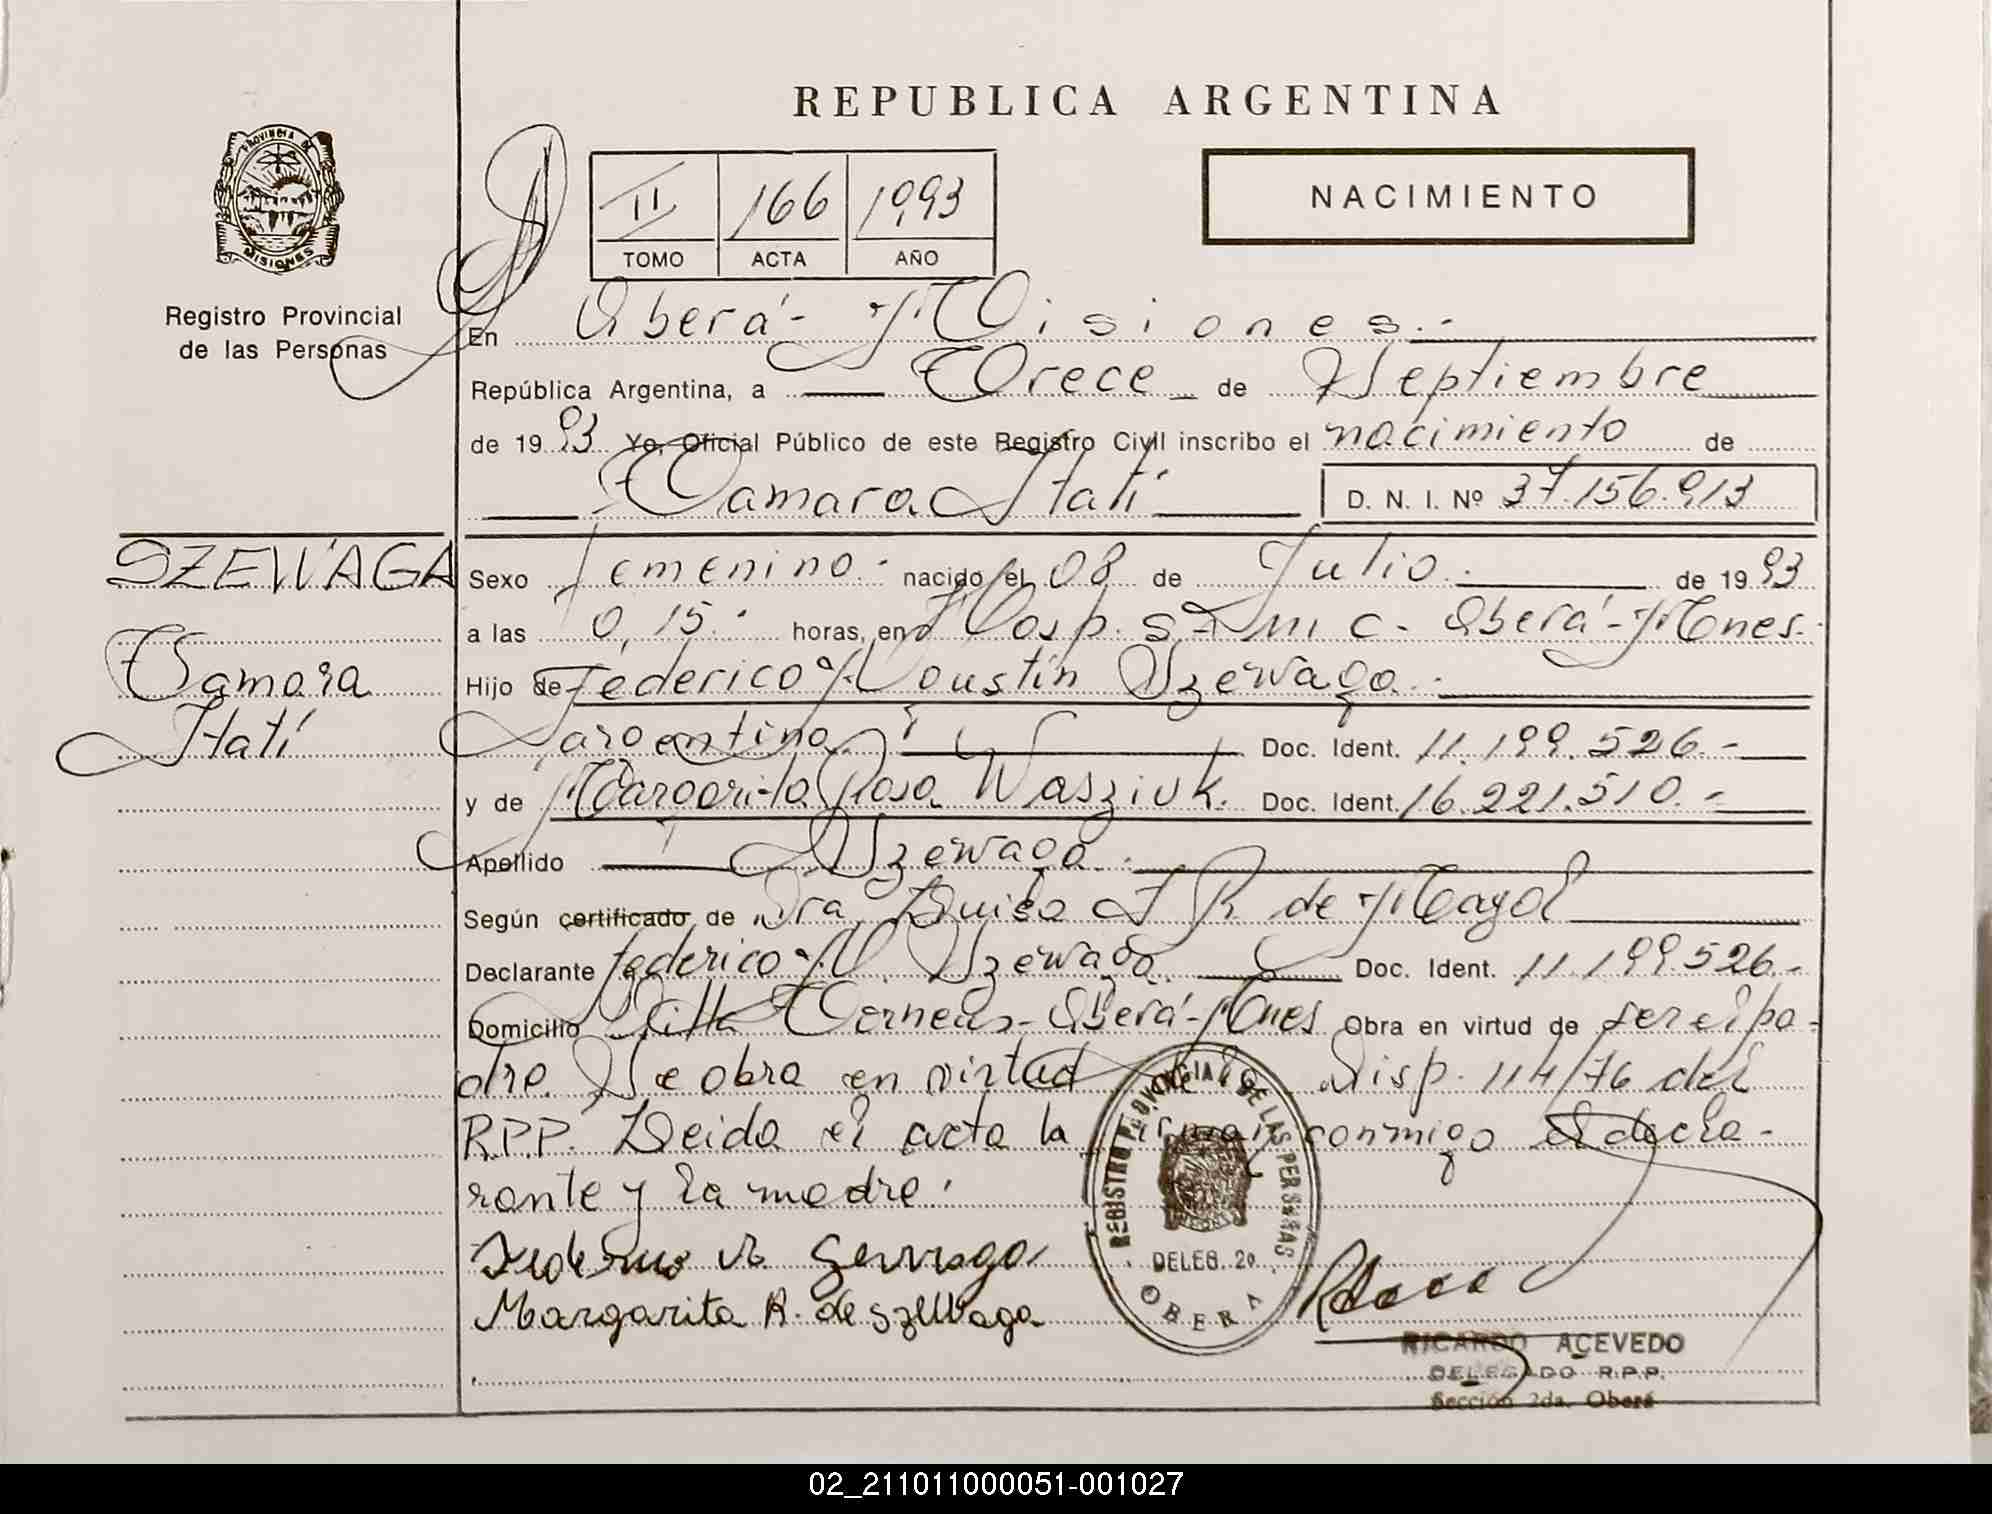 REPUBLICA ARGENTINA
PROVINCIA DE
MISIONES
Registro Provincial
de las Personas
II 166 1993
TOMO ACTA AÑO
NACIMIENTO
En Oberá - Misiones.-
República Argentina, a Trece de Septiembre
de 1993 Yo, Oficial Público de este Registro Civil inscribo el nacimiento de
Tamara Itatí D. N. I. Nº 37.156.913
SZEWAGA
Tamara
Itatí
Sexo femenino.- nacido el 08 de Julio. de 1993
a las 0,15.- horas, en Hosp. S. I. M. C. - Oberá - Mnes.-
Hijo de Federico Agustín Szewaga.-
argentino Doc. Ident. 11.199.526.-
y de Margarita Rosa Wasziuk. Doc. Ident. 16.221.510.-
Apellido Szewaga.
Según certificado de Dra. Luisa I R. de Mayol
Declarante Federico A. Szewaga Doc. Ident. 11.199.526.-
Domicilio Villa Oberá - Mnes Obra en virtud de ser el pa-
dre. Se obra en virtud de la Disp. 114/76 del
R.P.P. Leida el acta la firman conmigo el decla-
rante y la madre.
Margarita R. de Szewaga
REGISTRO PROVINCIAL DE LAS PERSONAS
DELEG. 2a
OBERA
RICARDO ACEVEDO
DELEGADO R.P.P.
Sección 2da. Oberá
02_211011000051-001027